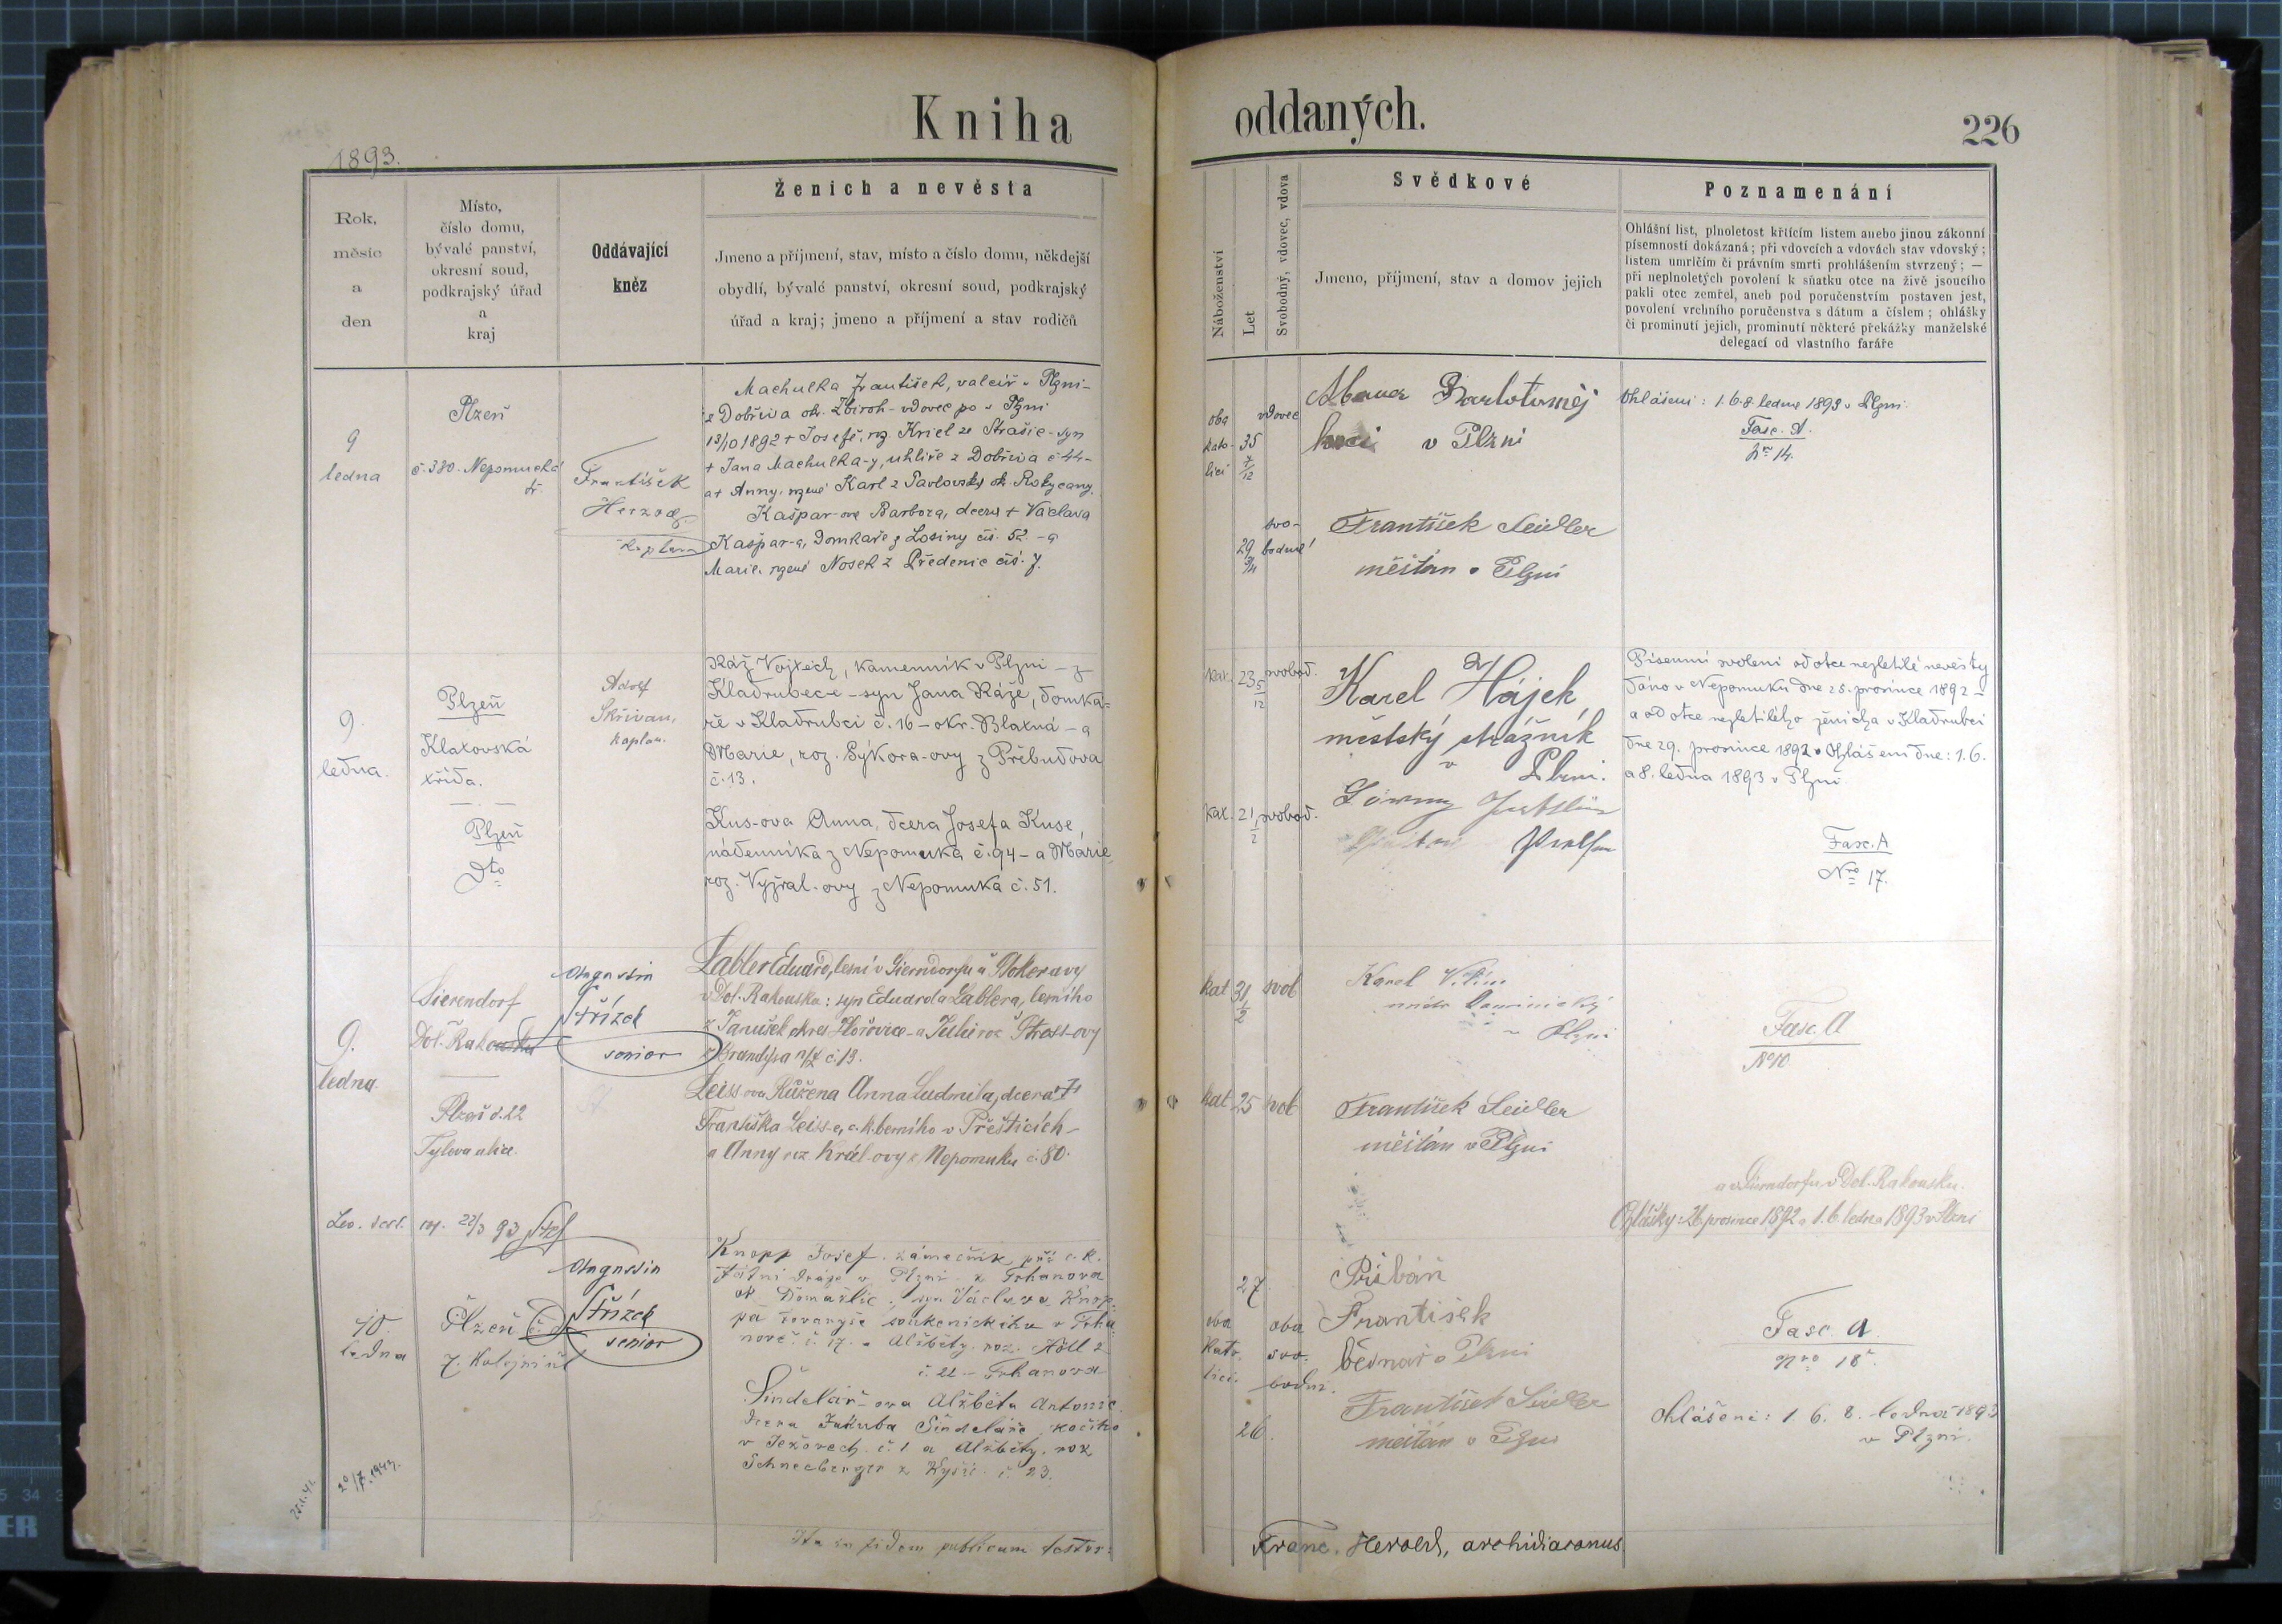 Kniha
oddaných.
226
1893.
Rok,
měsíc
a
den
Místo,
číslo domu,
bývalé panství,
okresní soud,
podkrajský úřad
a
kraj
Oddávající
kněz
Ženich a nevěsta
Jmeno a příjmení, stav, místo a číslo domu, někdejší
obydlí, bývalé panství, okresní soud, podkrajský
úřad a kraj; jmeno a příjmení a stav rodičů
Náboženství
Let
Svobodný, vdovec, vdova
Svědkové
Jmeno, příjmení, stav a domov jejich
Poznamenání
Ohlášní list, plnoletost křticím listem anebo jinou zákonní
písemností dokázaná; při vdovcích a vdovách stav vdovský;
listem umrlčím či právním smrti prohlášením stvrzený; —
při neplnoletých povolení k sňatku otce na živě jsoucího
pakli otec zemřel, aneb pod poručenstvím postaven jest,
povolení vrchního poručenstva s dátum a číslem; ohlášky
či prominutí jejich, prominutí některé překážky manželské
delegací od vlastního faráře
9
ledna
Plzeň
č. 380. Nepomucká
tř.
František
Herzog
kaplan
Machulka František, valcíř v Plzni-
z Dobříva ok. Zbiroh - vdovec po v Plzni
13/10 1892 + Josefě, roz. Kriel ze Strašic - syn
+ Jana Machulka-y, uhlíře z Dobříva č 44-
a + Anny, rozené Karl z Pavlovska ok. Rokycany.
Kašpar-ova Barbora, dcera + Václava
Kašpar-a, domkaře z Losiny čís. 52 - a
Marie, rozené Nosek z Předenic čís. 7.
oba
kato-
lici
35
7/12
vdovec
29
svo-
bodná
Bartoloměj
v Plzni
František Seidler
měštan v Plzni
Ohlášeni: 1. 6. 8. ledna 1893 v Plzni.
Fasc. A.
Nro 14.
9.
ledna.
Plzeň
Klatovská
třída.
Plzeň
Dto
Adolf
Skřivan,
kaplan.
Ráž Vojtěch, kamenník v Plzni - z
Kladrubec-e - syn Jana Ráže, domka-
ře v Kladrubci č. 16 - okr. Blatná - a
Marie, roz. Sýkora-ovy z Přebudova
č. 13.
Kus-ova Anna, dcera Josefa Kuse,
nádenníka z Nepomuka č. 94 - a Marie,
roz. Vyžral-ovy z Nepomuka č. 51.
kat. 23 5/12 svobod.
kat. 21 1/2 svobod.
Karel Hájek
městský strážník
v Plzni.
Písemní svolení od otce nezletilé nevěsty
dáno v Nepomuku dne 28. prosince 1892 -
a od otce nezletilého ženicha v Kladrubci
dne 29. prosince 1892. Ohlášeni dne: 1. 6.
a 8. ledna 1893 v Plzni.
Fasc. A
Nro 17.
9.
ledna
Sierendorf
Dol. Rakousko
Plzeň č. 22
Tylova ulice.
Augustin
Střízek
senior
Labler Eduard, lesní v Sierndorfu u Stokeravy
v Dol. Rakousku: syn Eduarda Lablera, lesního
z Janušek okres Hořovice - a Julie roz Stross-ovy
z Brandýsa n/L č. 13.
Leiss-ova Růžena Anna Ludmila, dcera +
Františka Leiss-e, c. k. berního v Přešticích -
a Anny roz Král-ovy z Nepomuku č. 80.
kat 31 1/2 svob
kat 25 svob
Karel
v Plzni
František Seidler
měštan v Plzni
Fasc. A
No 10
a v Sierndorfu v Dol. Rakousku.
Ohlášky: 26 prosince 1892 a 1. 6. ledna 1893 v Plzni
22/3 93
10
ledna
Plzeň
Augustin
Střízek
senior
Knopp Josef, zámečník při c. k.
státní dráze v Plzni - z Trhanova
ok Domažlic, syn Václava Knop-
pa tovaryše soukenického v Trha-
nově č. 17. a Alžběty, roz. Höll z
č. 22 - Trhanova
Šindelář-ova Alžběta Antonie,
dcera Jakuba Šindeláře, kočího
v Ježovech č. 1 a Alžběty, roz
Schneeberger z Kyšic č. 23.
27.
oba
kato-
lici.
oba
svo-
bodni.
26.
Přibáň
František
bednař v Plzni
František Seidler
měštan v Plzni
Fasc. A.
Nro 18.
Ohlášeni: 1. 6. 8. ledna 1893
v Plzni.
20/7. 1943.
Ita in fidem publicam testor:
Franc. Herold, archidiaconus